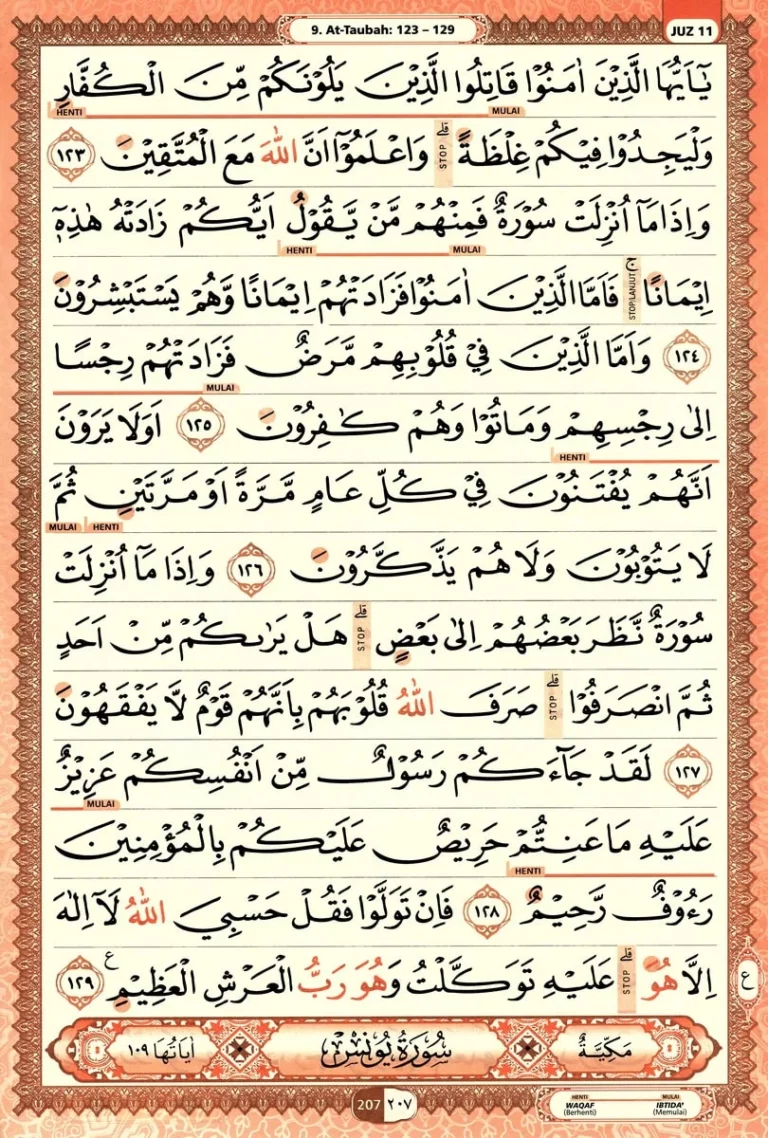 9. At-Taubah: 123 – 129
JUZ 11
يٰٓاَيُّهَا الَّذِيْنَ اٰمَنُوْا قَاتِلُوا الَّذِيْنَ يَلُوْنَكُمْ مِّنَ الْكُفَّارِ
HENTI MULAI
وَلْيَجِدُوْا فِيْكُمْ غِلْظَةًۗ وَاعْلَمُوْٓا اَنَّ اللّٰهَ مَعَ الْمُتَّقِيْنَ ١٢٣
STOP
وَاِذَا مَآ اُنْزِلَتْ سُوْرَةٌ فَمِنْهُمْ مَّنْ يَّقُوْلُ اَيُّكُمْ زَادَتْهُ هٰذِهٖٓ
HENTI MULAI
اِيْمَانًاۚ فَاَمَّا الَّذِيْنَ اٰمَنُوْا فَزَادَتْهُمْ اِيْمَانًا وَّهُمْ يَسْتَبْشِرُوْنَ
STOP/LANJUT
١٢٤ وَاَمَّا الَّذِيْنَ فِيْ قُلُوْبِهِمْ مَّرَضٌ فَزَادَتْهُمْ رِجْسًا
MULAI
اِلٰى رِجْسِهِمْ وَمَاتُوْا وَهُمْ كٰفِرُوْنَ ١٢٥ اَوَلَا يَرَوْنَ
HENTI
اَنَّهُمْ يُفْتَنُوْنَ فِيْ كُلِّ عَامٍ مَّرَّةً اَوْ مَرَّتَيْنِ ثُمَّ
MULAI HENTI
لَا يَتُوْبُوْنَ وَلَا هُمْ يَذَّكَّرُوْنَ ١٢٦ وَاِذَا مَآ اُنْزِلَتْ
سُوْرَةٌ نَّظَرَ بَعْضُهُمْ اِلٰى بَعْضٍۗ هَلْ يَرٰىكُمْ مِّنْ اَحَدٍ
STOP
ثُمَّ انْصَرَفُوْاۗ صَرَفَ اللّٰهُ قُلُوْبَهُمْ بِاَنَّهُمْ قَوْمٌ لَّا يَفْقَهُوْنَ
STOP
١٢٧ لَقَدْ جَاۤءَكُمْ رَسُوْلٌ مِّنْ اَنْفُسِكُمْ عَزِيْزٌ
MULAI
عَلَيْهِ مَا عَنِتُّمْ حَرِيْصٌ عَلَيْكُمْ بِالْمُؤْمِنِيْنَ
HENTI
رَءُوْفٌ رَّحِيْمٌ ١٢٨ فَاِنْ تَوَلَّوْا فَقُلْ حَسْبِيَ اللّٰهُ لَآ اِلٰهَ
اِلَّا هُوَۗ عَلَيْهِ تَوَكَّلْتُ وَهُوَ رَبُّ الْعَرْشِ الْعَظِيْمِ ع ١٢٩
STOP
ع
مَكِّيَّةٌ سُوْرَةُ يُوْنُسَ اٰيَاتُهَا ١٠٩
207 ٢٠٧
HENTI MULAI
WAQAF IBTIDA'
(Berhenti) (Memulai)